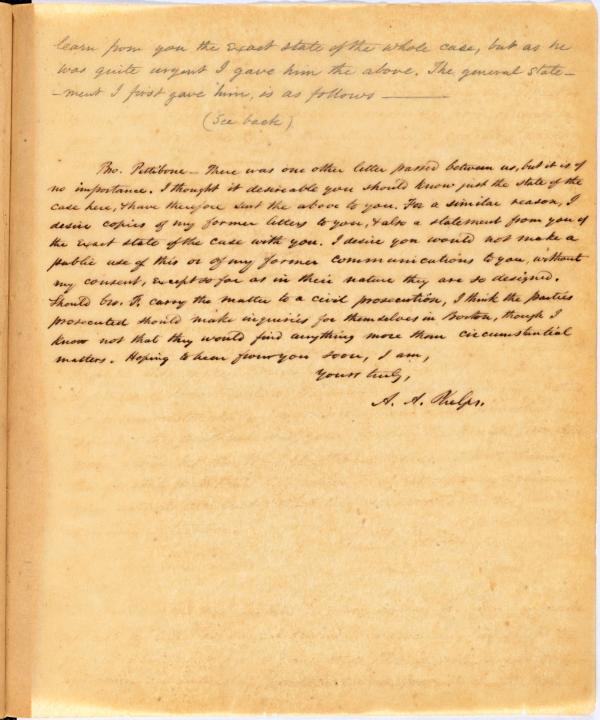 learn from you the exact state of the whole case, but as he
was quite urgent I gave him the above. The general state-
-ment I first gave him, is as follows ———
(See back)
Bro. Pettibone — There was one other letter passed between us, but it is of
no importance. I thought it desireable you should know just the state of the
case here, & have therefore sent the above to you. For a similar reason, I
desire copies of my former letters to you, & also a statement from you of
the exact state of the case with you. I desire you would not make a
public use of this or of my former communications to you, without
my consent, except so far as in their nature they are so designed.
Should bro. F. carry the matter to a civil prosecution, I think the parties
prosecuted should make inquiries for themselves in Boston, though I
know not that they would find anything more than circumstantial
matters. Hoping to hear from you soon, I am,
Yours truly,
A. A. Phelps.